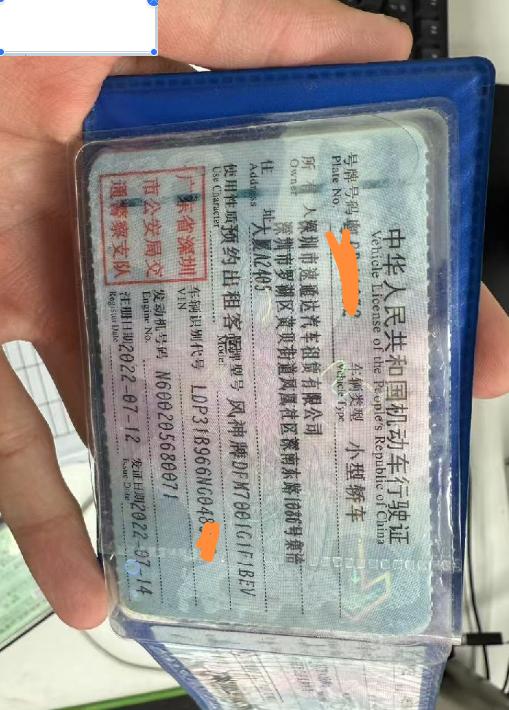 中华人民共和国机动车行驶证
Vehicle License of the People's Republic of China
号牌号码
Plate No.
车辆类型 小型轿车
Vehicle Type
所有人 深圳市速雅达汽车租赁有限公司
Owner
住址 深圳市罗湖区黄贝街道凤凰社区深南东路
大厦A2405
Address
使用性质 预约出租客运
Use Character
品牌型号 风神牌DFM7001G1F1BEV
Model
车辆识别代号 LDP31B966NG048
VIN
发动机号码 N600205680071
Engine No.
注册日期 2022-07-12
Register Date
发证日期 2022-07-14
Issue Date
广东省深圳
市公安局交
通警察支队